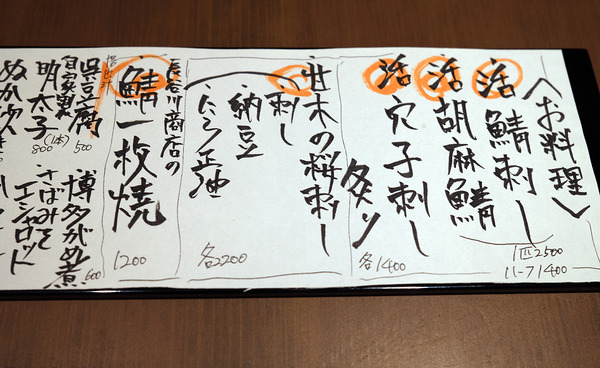 〈お料理〉
活 鯖刺し
活 胡麻鯖
1匹2500
ハーフ1400
活 穴子刺し
炙り
各1400
の桜刺し
刺し
納豆
各2200
長谷川商店の
鯖一枚焼
1200
呉豆腐 500
博多がめ煮 600
自家製
明太子 (1本) 800
さばみそ
エシャロット
ぬか炊き